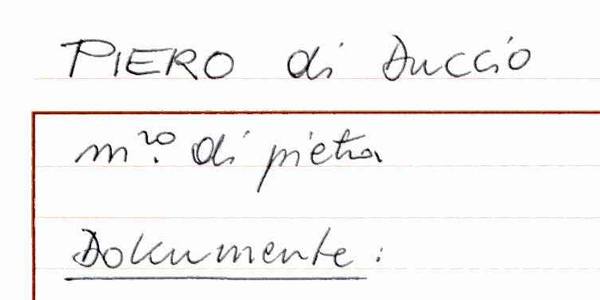 PIERO di Duccio
m.ro di pietra
Dokumente: